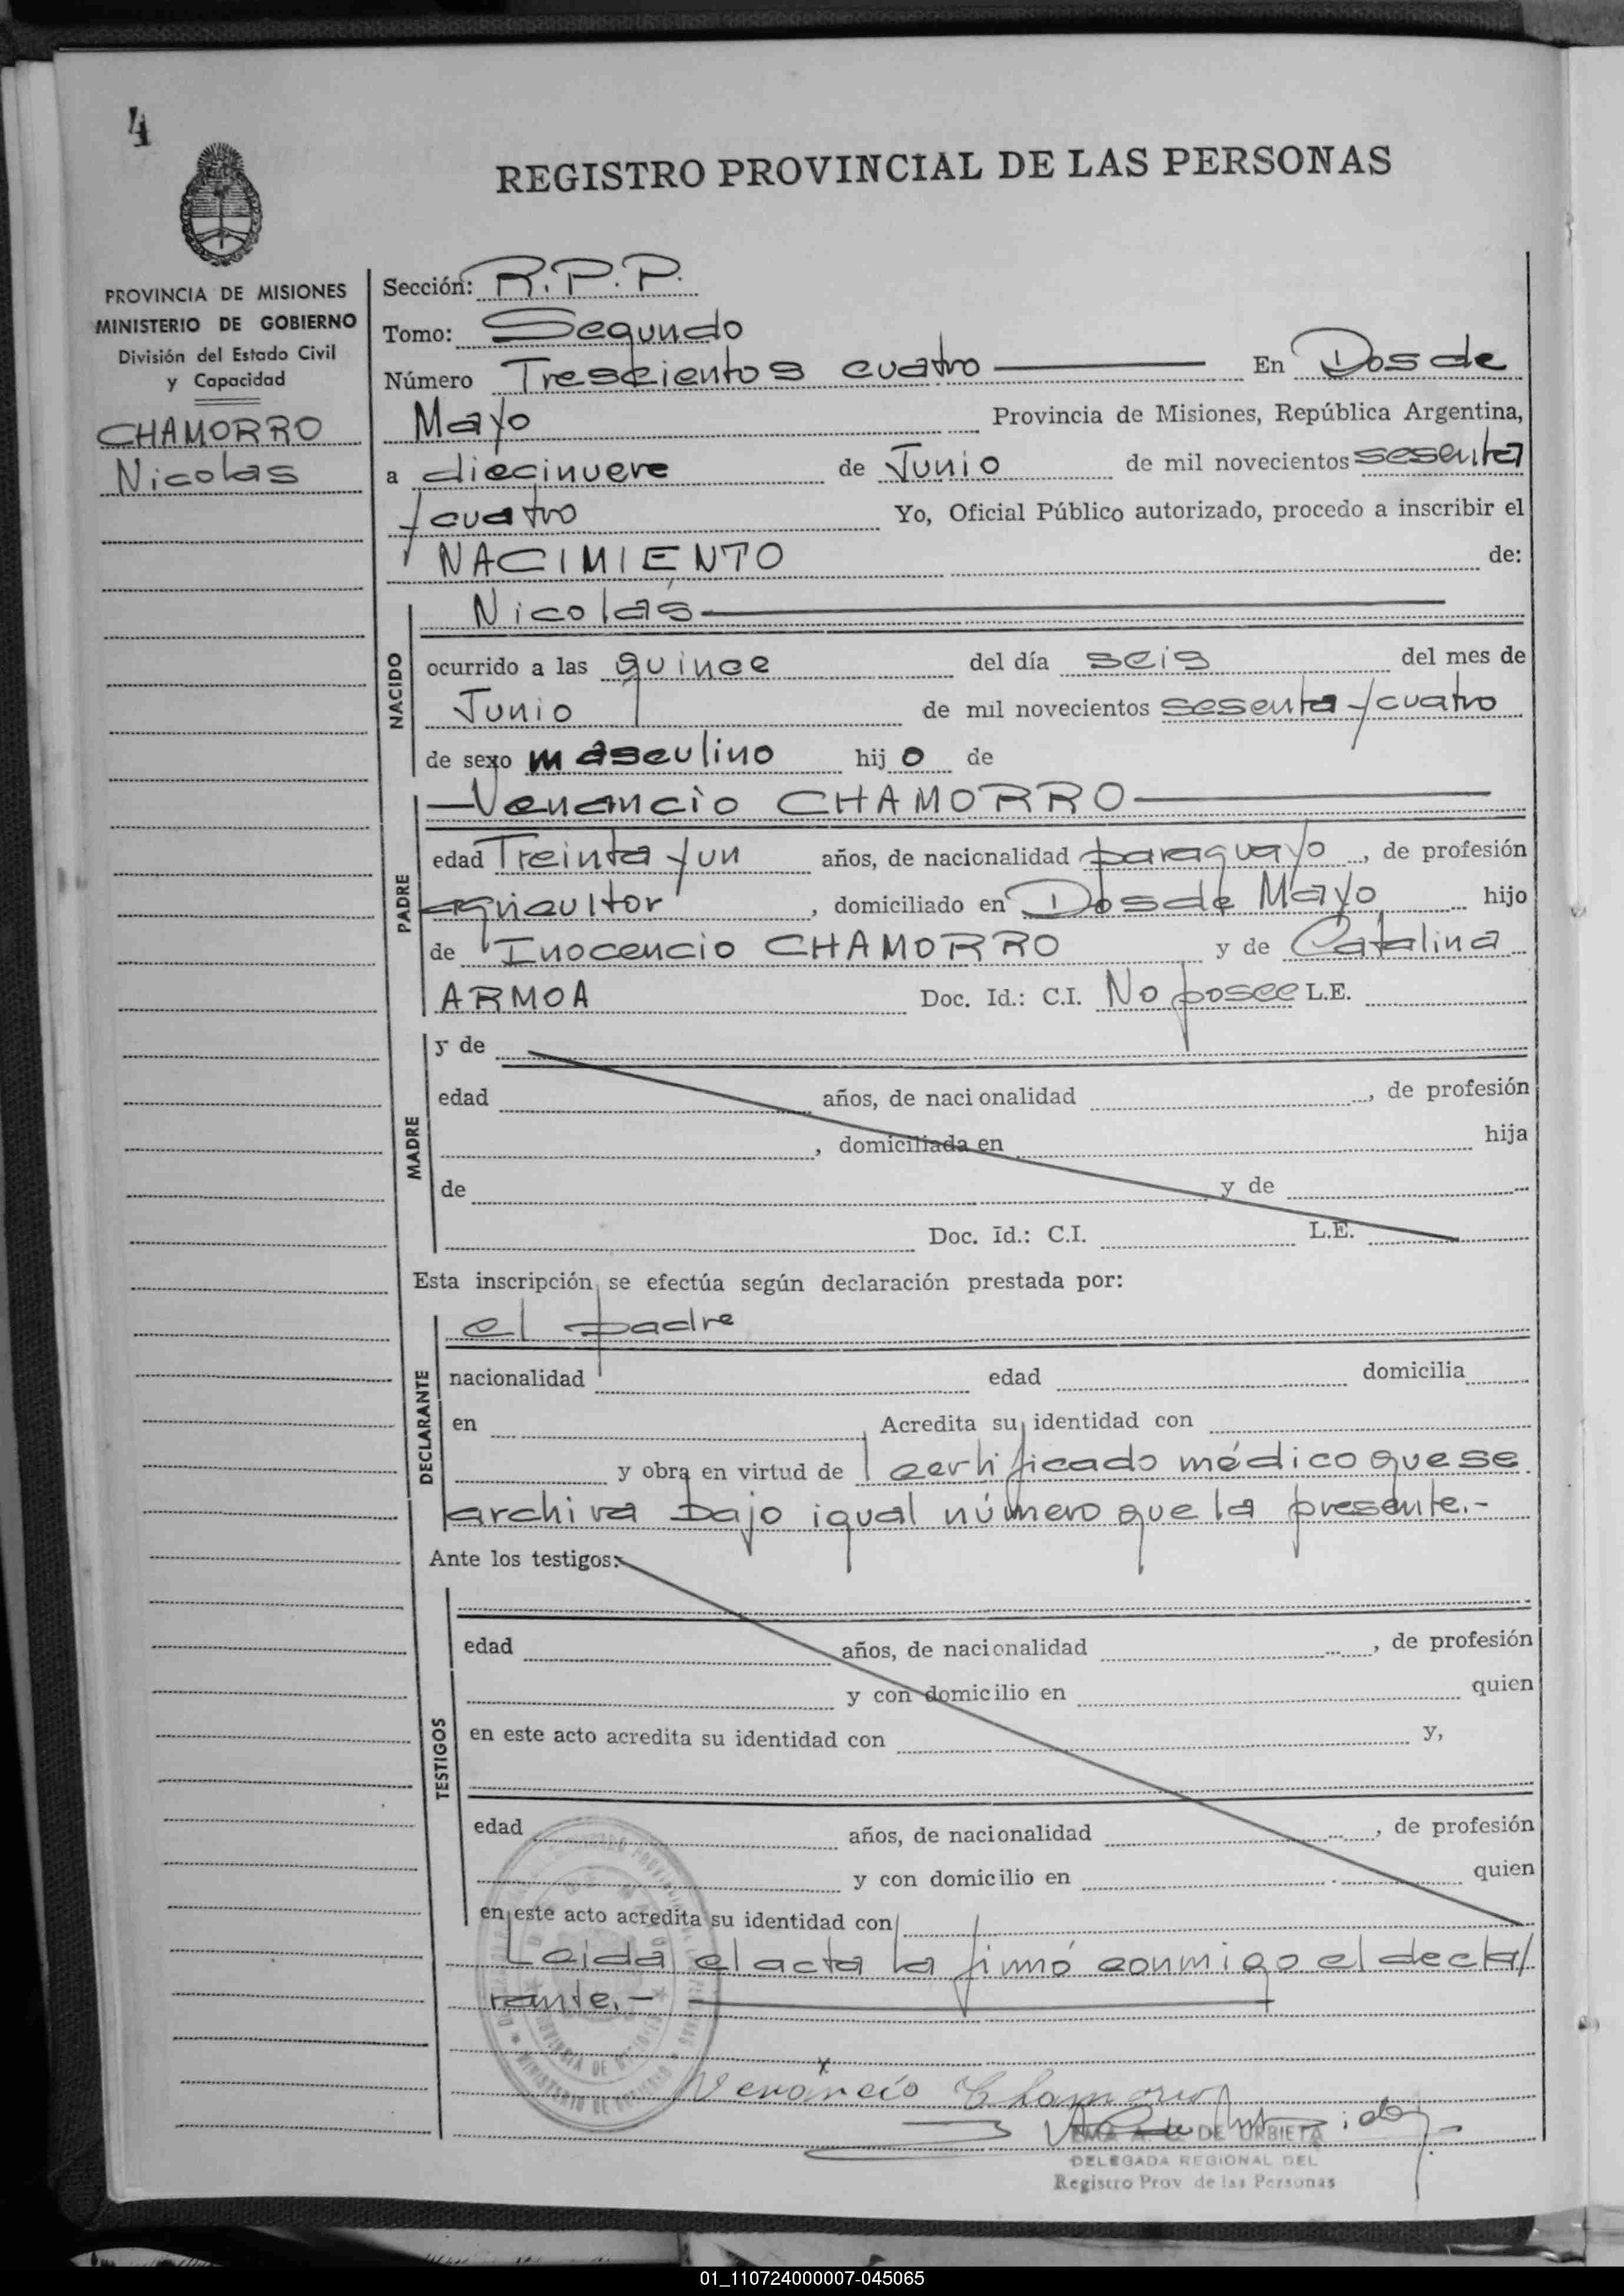 4
REGISTRO PROVINCIAL DE LAS PERSONAS
PROVINCIA DE MISIONES
MINISTERIO DE GOBIERNO
División del Estado Civil
y Capacidad
CHAMORRO
Nicolas
Sección: R.P.P.
Tomo: Segundo
Número Trescientos cuatro En Dos de
Mayo Provincia de Misiones, República Argentina,
a diecinueve de Junio de mil novecientos sesenta
y cuatro Yo, Oficial Público autorizado, procedo a inscribir el
NACIMIENTO de:
NACIDO
Nicolás
ocurrido a las quince del día seis del mes de
Junio de mil novecientos sesenta y cuatro
de sexo masculino hijo de
PADRE
Venancio CHAMORRO
edad Treinta y un años, de nacionalidad paraguayo, de profesión
agricultor, domiciliado en Dos de Mayo hijo
de Inocencio CHAMORRO y de Catalina
ARMOA Doc. Id.: C.I. No posee L.E.
MADRE
y de
edad años, de nacionalidad , de profesión
, domiciliada en hija
de y de
Doc. Id.: C.I. L.E.
Esta inscripción se efectúa según declaración prestada por:
DECLARANTE
el padre
nacionalidad edad domicilia
en Acredita su identidad con
y obra en virtud de certificado médico que se
archiva bajo igual número que la presente.-
Ante los testigos:
TESTIGOS
edad años, de nacionalidad , de profesión
y con domicilio en quien
en este acto acredita su identidad con y,
edad años, de nacionalidad , de profesión
y con domicilio en quien
en este acto acredita su identidad con
Leida el acta la firmó conmigo el decla/
rante.-
x
Venancio Chamorro
DE URBIETA
DELEGADA REGIONAL DEL
Registro Prov de las Personas
01_110724000007-045065